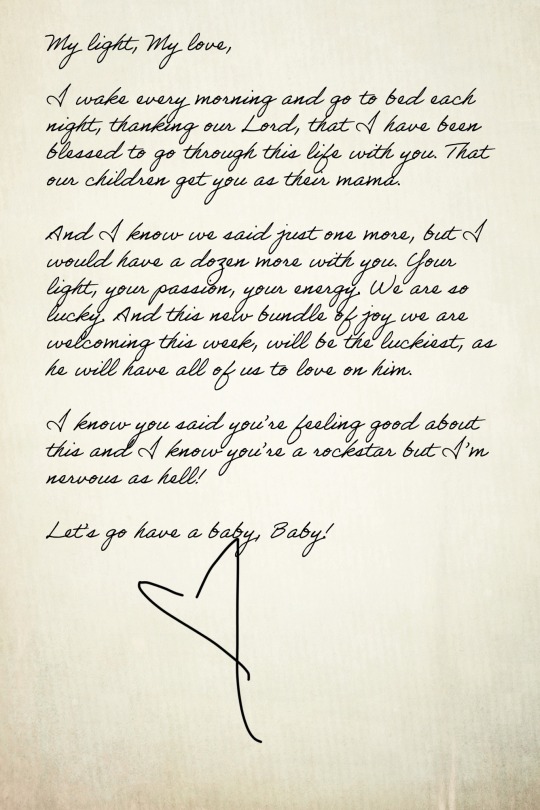 My light, My love,
I wake every morning and go to bed each
night, thanking our Lord, that I have been
blessed to go through this life with you. That
our children get you as their mama.
And I know we said just one more, but I
would have a dozen more with you. Your
light, your passion, your energy. We are so
lucky. And this new bundle of joy we are
welcoming this week, will be the luckiest, as
he will have all of us to love on him.
I know you said you're feeling good about
this and I know you're a rockstar but I'm
nervous as hell!
Let's go have a baby, Baby!